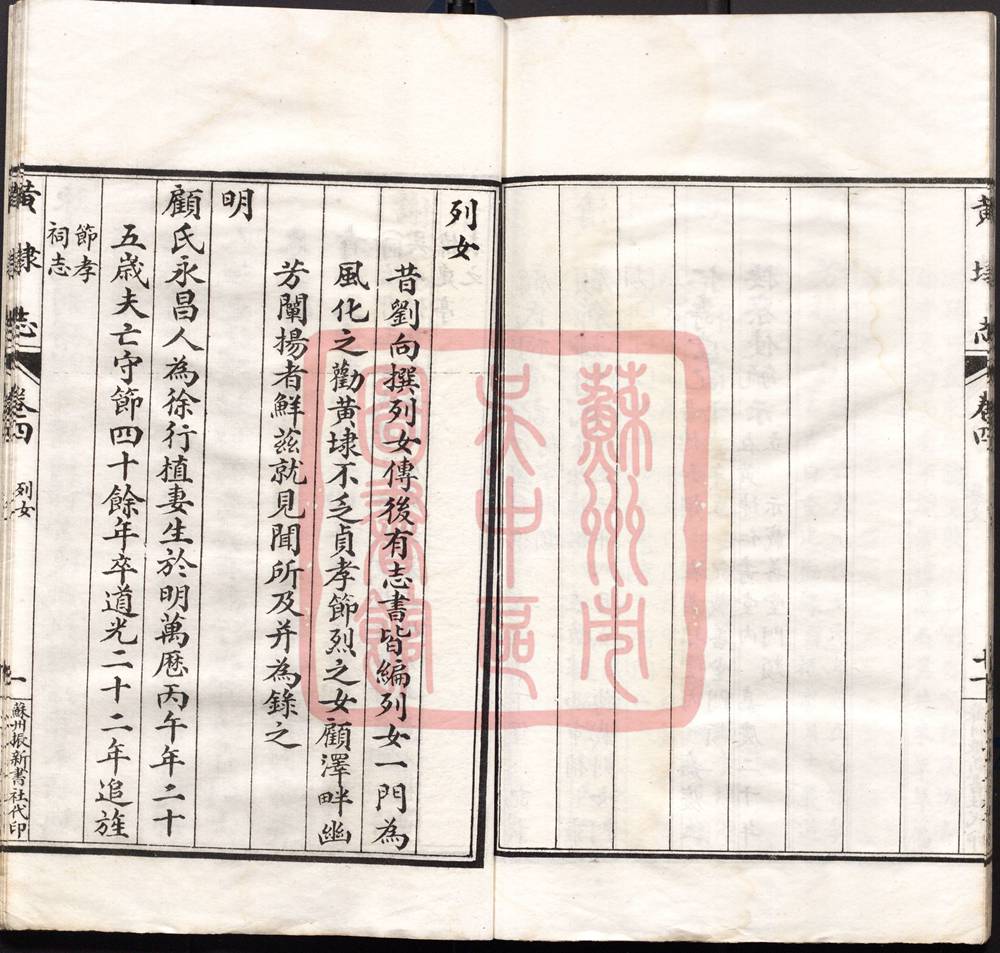 黃埭志
卷四
列女
昔劉向撰列女傳後有志書皆編列女一門為
風化之勸黃埭不乏貞孝節烈之女顧澤畔幽
芳闡揚者鮮茲就見聞所及并為錄之
明
顧氏永昌人為徐行植妻生於明萬歷丙午年二十
五歲夫亡守節四十餘年卒道光二十二年追旌
節孝
祠志
黃埭志
卷四
列女
一
蘇州振新書社代印
蘇州市
吳中區
圖書館